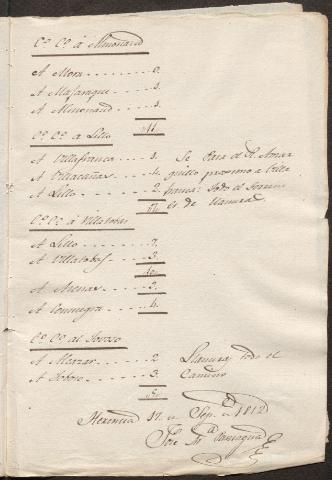 C.º C.º á Almonacid
A Mora . . . . . . . . 
A Mascaraque . . . 
A Almonacid . . . 
11.
C.º C.º á Lillo
A Villafranca . . . Se Pasa el R. Amar
A Villacañas . . 4. guillo proximo a Villa
A Lillo . . . . . . . 2. franca: todo el terreno
es de llanura
C.º C.º á Villatobas
A Lillo . . . . . 7.
A Villatobas . . . 3.
10.
A Arenas . . . . 
A Consuegra . . 4.
C.º C.º al Toboso
A Alcazar . . . . . . 2. Llanura todo el
A Toboso . . . . . . 3. Camino
5.
Herencia 17. de Sep.e de 1812
Jose M.a Paniagua